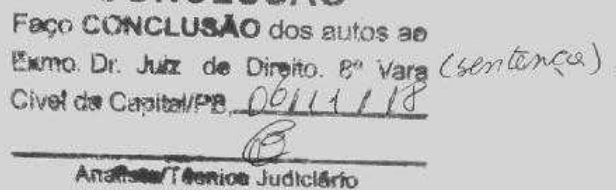 CONCLUSÃO
Faço CONCLUSÃO dos autos ao
Exmo. Dr. Juiz de Direito. 8ª Vara (sentença)
Cível da Capital/PB, 06/11/18
Analista/Técnico Judiciário